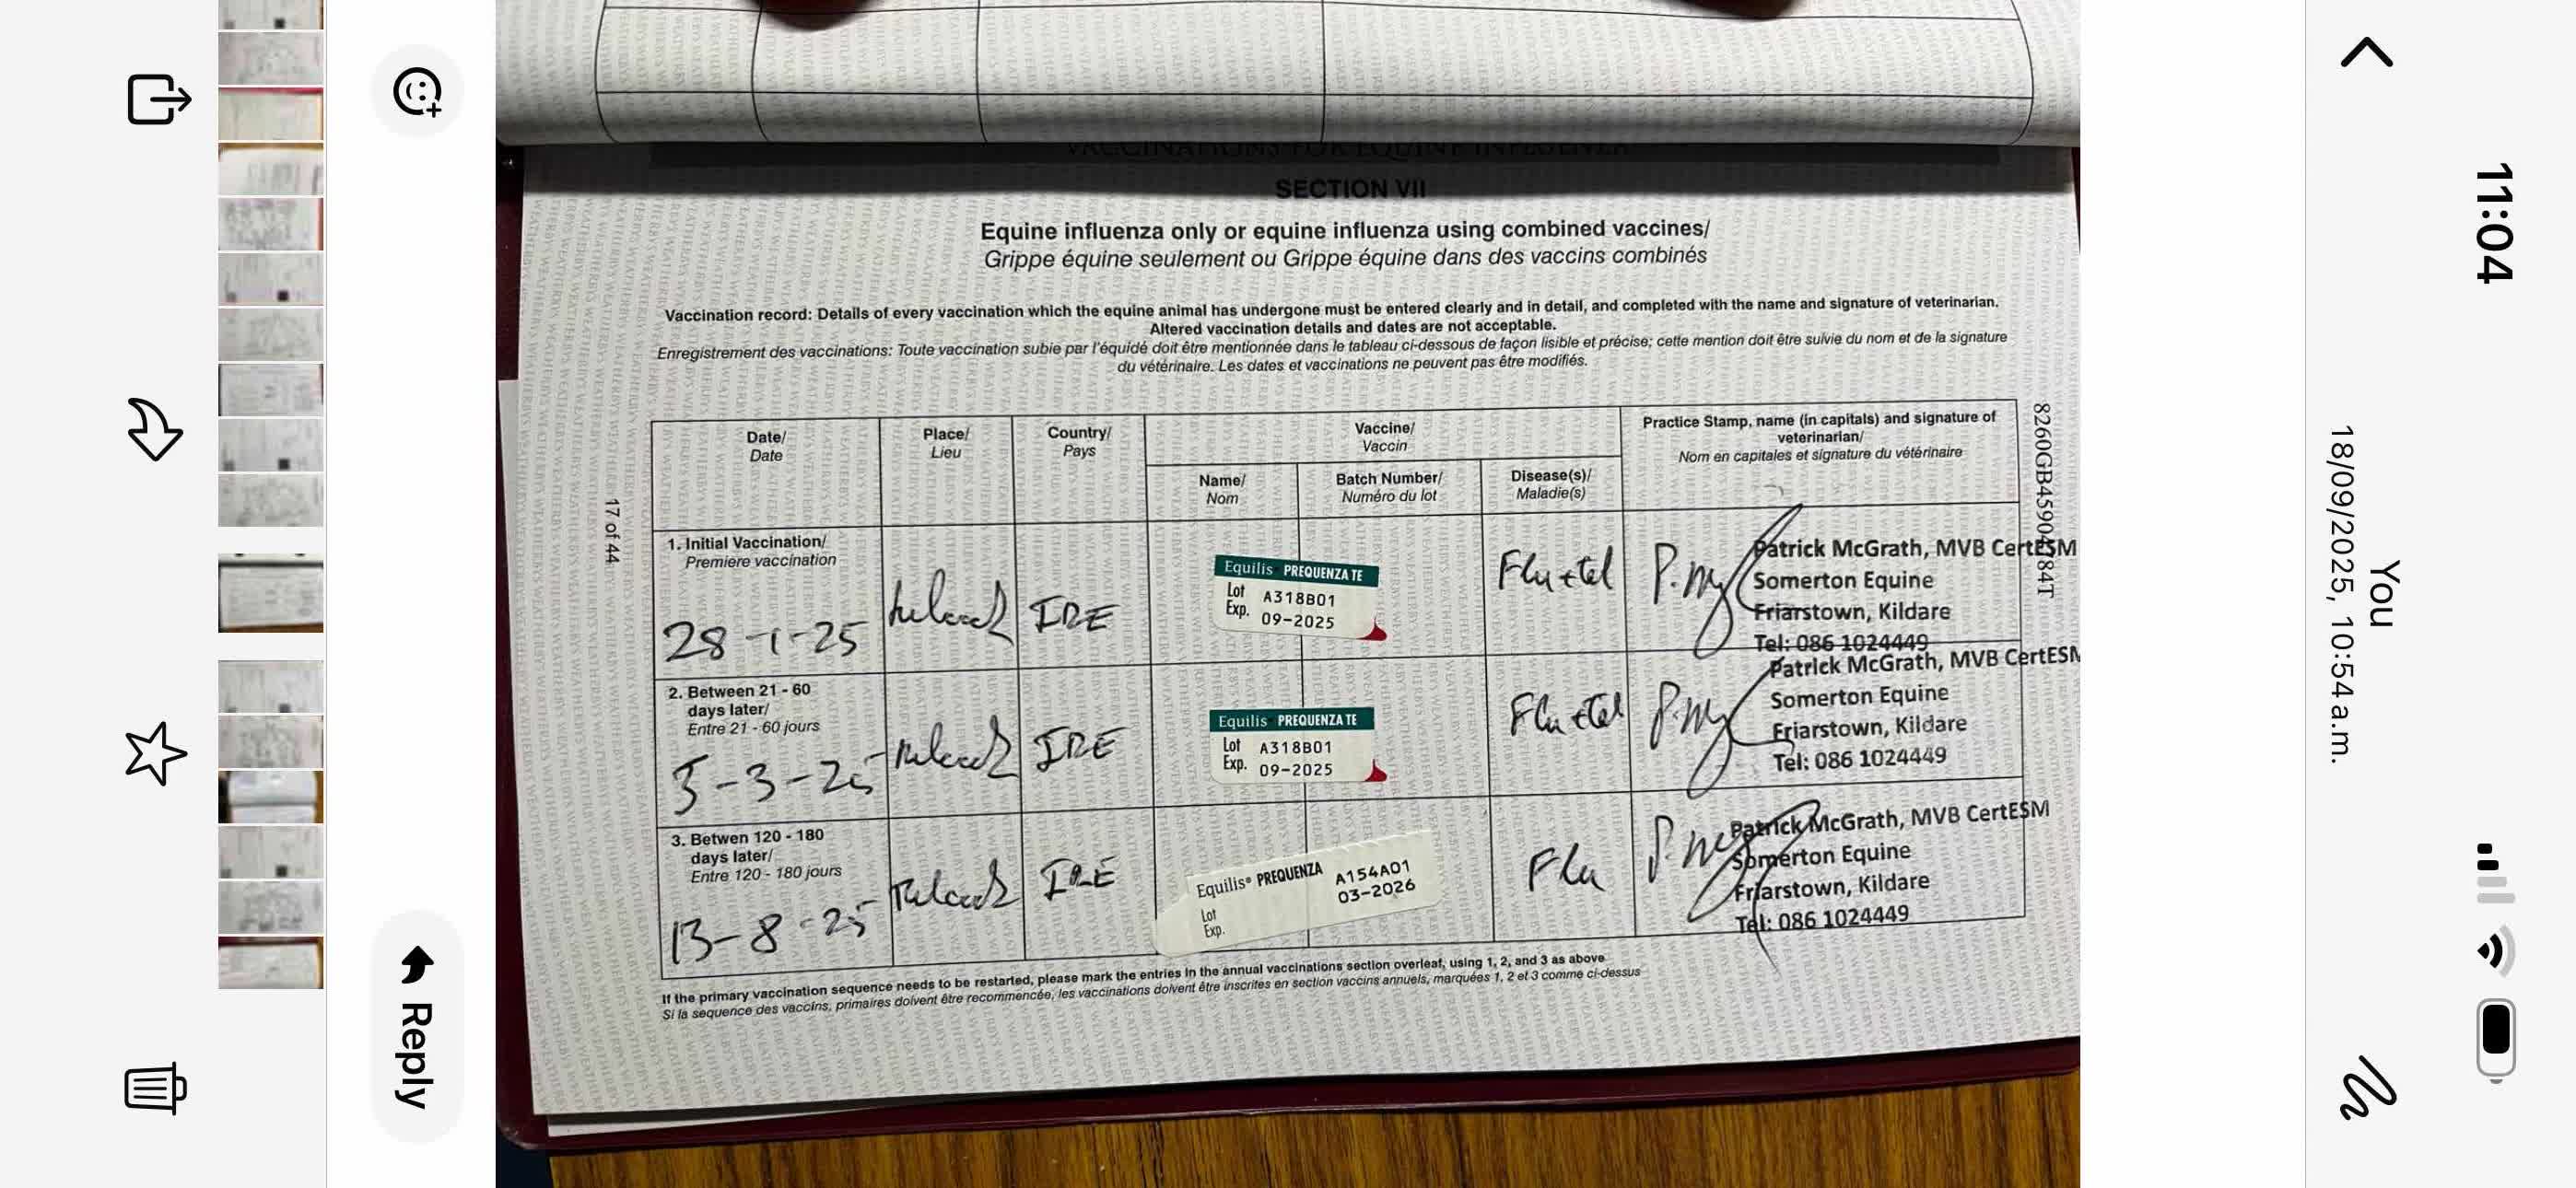 SECTION VII
Equine influenza only or equine influenza using combined vaccines/
Grippe équine seulement ou Grippe équine dans des vaccins combinés
Vaccination record: Details of every vaccination which the equine animal has undergone must be entered clearly and in detail, and completed with the name and signature of veterinarian.
Altered vaccination details and dates are not acceptable.
Enregistrement des vaccinations: Toute vaccination subie par l'équidé doit être mentionnée dans le tableau ci-dessous de façon lisible et précise; cette mention doit être suivie du nom et de la signature
du vétérinaire. Les dates et vaccinations ne peuvent pas être modifiés.
Date/
Date
Place/
Lieu
Country/
Pays
Vaccine/
Vaccin
Name/
Nom
Batch Number/
Numéro du lot
Disease(s)/
Maladie(s)
Practice Stamp, name (in capitals) and signature of
veterinarian/
Nom en capitales et signature du vétérinaire
1. Initial Vaccination/
Premiere vaccination
28-1-25
IRE
Equilis PREQUENZA TE
Lot A318B01
Exp. 09-2025
Flu+tet
Patrick McGrath, MVB CertESM
Somerton Equine
Friarstown, Kildare
Tel: 086 1024449
2. Between 21 - 60
days later/
Entre 21 - 60 jours
5-3-25
IRE
Equilis PREQUENZA TE
Lot A318B01
Exp. 09-2025
Flu+tet
Patrick McGrath, MVB CertESM
Somerton Equine
Friarstown, Kildare
Tel: 086 1024449
3. Betwen 120 - 180
days later/
Entre 120 - 180 jours
13-8-25
IRE
Equilis® PREQUENZA
Lot A154A01
Exp. 03-2026
Flu
Patrick McGrath, MVB CertESM
Somerton Equine
Friarstown, Kildare
Tel: 086 1024449
If the primary vaccination sequence needs to be restarted, please mark the entries in the annual vaccinations section overleaf, using 1, 2, and 3 as above
Si la sequence des vaccins, primaires doivent être recommencée, les vaccinations doivent être inscrites en section vaccins annuels, marquées 1, 2 et 3 comme ci-dessus
17 of 44
11:04
You
18/09/2025, 10:54 a.m.
Reply